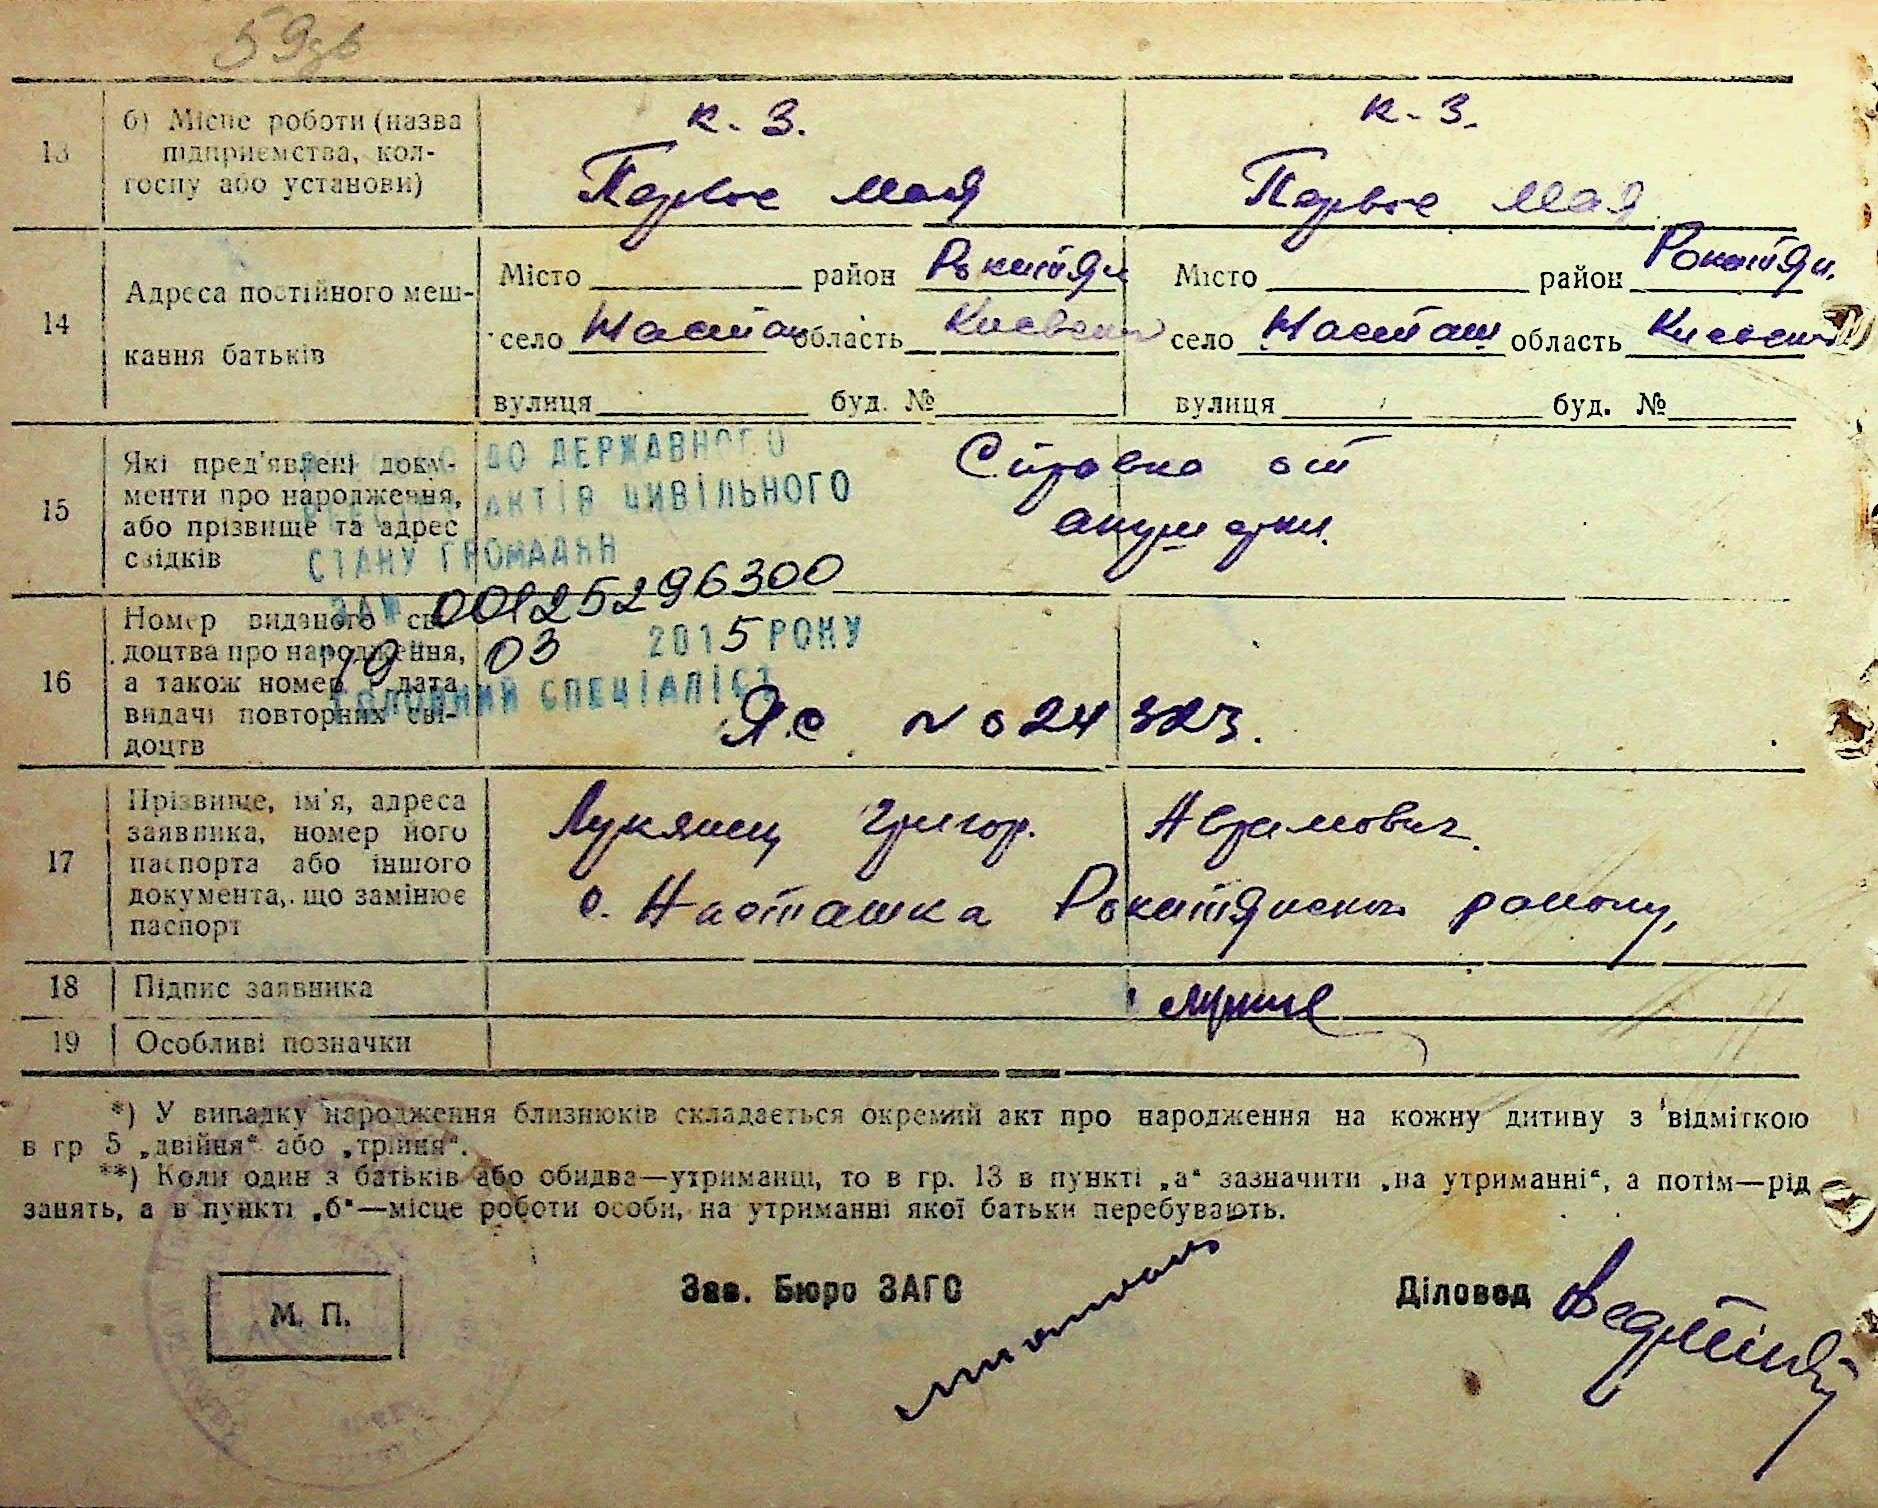 59зв
13
б) Місце роботи (назва
підприємства, кол-
госпу або установи)
к. з.
Первое мая
к. з.
Первое мая
14
Адреса постійного меш-
кання батьків
Місто район Рокитян
село Насташ область Киевский
вулиця буд. №
Місто район Рокитян.
село Насташ область Киевский
вулиця буд. №
15
Які пред'явлені доку-
менти про народження,
або прізвище та адрес
свідків
Справка от
акушерки.
ДО ДЕРЖАВНОГО
АКТІВ ЦИВІЛЬНОГО
СТАНУ ГРОМАДЯН
ЗА № 00125296300
19 03 2015 РОКУ
ГОЛОВНИЙ СПЕЦІАЛІСТ
16
Номер виданого сві-
доцтва про народження,
а також номер і дата
видачі повторних сві-
доцтв
Я.С. № 024323.
17
Прізвище, ім'я, адреса
заявника, номер його
паспорта або іншого
документа, що замінює
паспорт
Лукянец Григор. Аврамович.
с. Насташка Рокитянского району,
18
Підпис заявника
19
Особливі позначки
*) У випадку народження близнюків складається окремий акт про народження на кожну дитину з відміткою
в гр 5 „двійня“ або „трійня“.
**) Коли один з батьків або обидва—утриманці, то в гр. 13 в пункті „а“ зазначити „на утриманні“, а потім—рід
занять, а в пункті „б“—місце роботи особи, на утриманні якої батьки перебувають.
М. П.
Зав. Бюро ЗАГС
Діловод